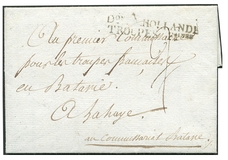 HOLLANDE
TROUPES
Au premier Commissaire
pour les troupes françaises
en Batavie
A Lahaye
au Commissariat Batave